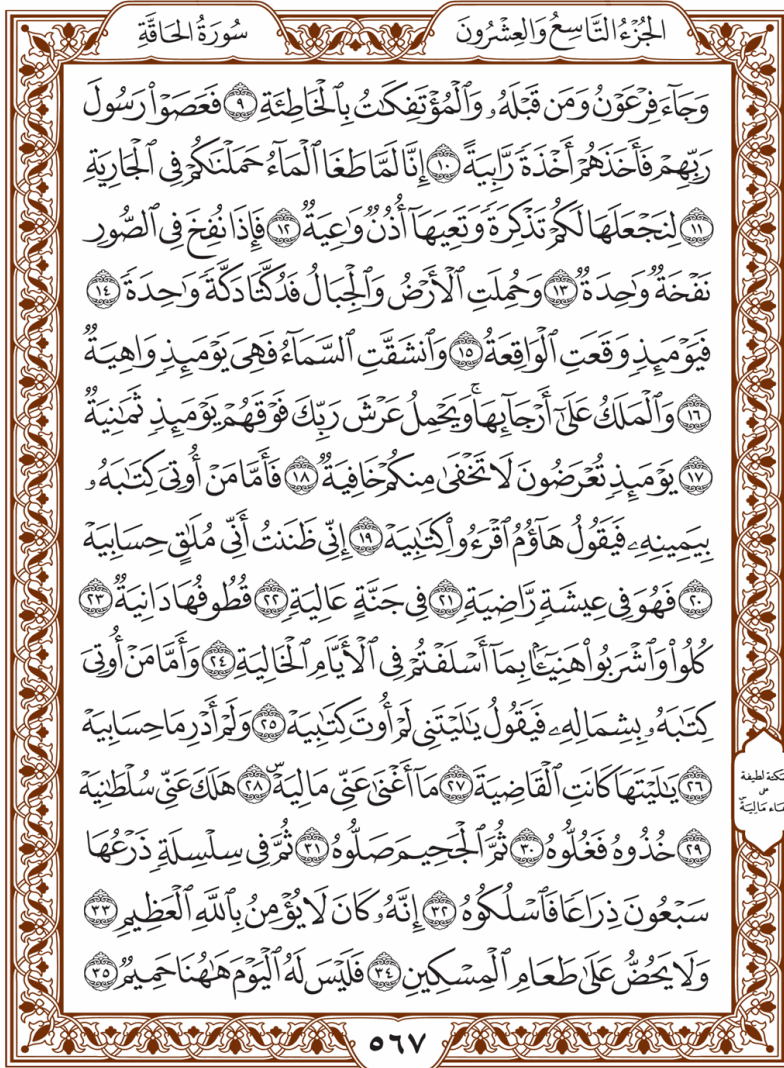 الجُزْءُ التَّاسِعُ وَالعِشْرُونَ
سُورَةُ الحَاقَّةِ
وَجَآءَ فِرْعَوْنُ وَمَن قَبْلَهُۥ وَٱلْمُؤْتَفِكَٰتُ بِٱلْخَاطِئَةِ ٩ فَعَصَوْا۟ رَسُولَ
رَبِّهِمْ فَأَخَذَهُمْ أَخْذَةً رَّابِيَةً ١٠ إِنَّا لَمَّا طَغَا ٱلْمَآءُ حَمَلْنَٰكُمْ فِى ٱلْجَارِيَةِ
١١ لِنَجْعَلَهَا لَكُمْ تَذْكِرَةً وَتَعِيَهَآ أُذُنٌ وَٰعِيَةٌ ١٢ فَإِذَا نُفِخَ فِى ٱلصُّورِ
نَفْخَةٌ وَٰحِدَةٌ ١٣ وَحُمِلَتِ ٱلْأَرْضُ وَٱلْجِبَالُ فَدُكَّتَا دَكَّةً وَٰحِدَةً ١٤
فَيَوْمَئِذٍ وَقَعَتِ ٱلْوَاقِعَةُ ١٥ وَٱنشَقَّتِ ٱلسَّمَآءُ فَهِىَ يَوْمَئِذٍ وَاهِيَةٌ
١٦ وَٱلْمَلَكُ عَلَىٰٓ أَرْجَآئِهَاۚ وَيَحْمِلُ عَرْشَ رَبِّكَ فَوْقَهُمْ يَوْمَئِذٍ ثَمَٰنِيَةٌ
١٧ يَوْمَئِذٍ تُعْرَضُونَ لَا تَخْفَىٰ مِنكُمْ خَافِيَةٌ ١٨ فَأَمَّا مَنْ أُوتِىَ كِتَٰبَهُۥ
بِيَمِينِهِۦ فَيَقُولُ هَآؤُمُ ٱقْرَءُوا۟ كِتَٰبِيَهْ ١٩ إِنِّى ظَنَنتُ أَنِّى مُلَٰقٍ حِسَابِيَهْ
٢٠ فَهُوَ فِى عِيشَةٍ رَّاضِيَةٍ ٢١ فِى جَنَّةٍ عَالِيَةٍ ٢٢ قُطُوفُهَا دَانِيَةٌ ٢٣
كُلُوا۟ وَٱشْرَبُوا۟ هَنِيٓـًٔۢا بِمَآ أَسْلَفْتُمْ فِى ٱلْأَيَّامِ ٱلْخَالِيَةِ ٢٤ وَأَمَّا مَنْ أُوتِىَ
كِتَٰبَهُۥ بِشِمَالِهِۦ فَيَقُولُ يَٰلَيْتَنِى لَمْ أُوتَ كِتَٰبِيَهْ ٢٥ وَلَمْ أَدْرِ مَا حِسَابِيَهْ
٢٦ يَٰلَيْتَهَا كَانَتِ ٱلْقَاضِيَةَ ٢٧ مَآ أَغْنَىٰ عَنِّى مَالِيَهْۜ ٢٨ هَلَكَ عَنِّى سُلْطَٰنِيَهْ
٢٩ خُذُوهُ فَغُلُّوهُ ٣٠ ثُمَّ ٱلْجَحِيمَ صَلُّوهُ ٣١ ثُمَّ فِى سِلْسِلَةٍ ذَرْعُهَا
سَبْعُونَ ذِرَاعًا فَٱسْلُكُوهُ ٣٢ إِنَّهُۥ كَانَ لَا يُؤْمِنُ بِٱللَّهِ ٱلْعَظِيمِ ٣٣
وَلَا يَحُضُّ عَلَىٰ طَعَامِ ٱلْمِسْكِينِ ٣٤ فَلَيْسَ لَهُ ٱلْيَوْمَ هَٰهُنَا حَمِيمٌ ٣٥
لطيفة
مَالِيَهْۜ
٥٦٧